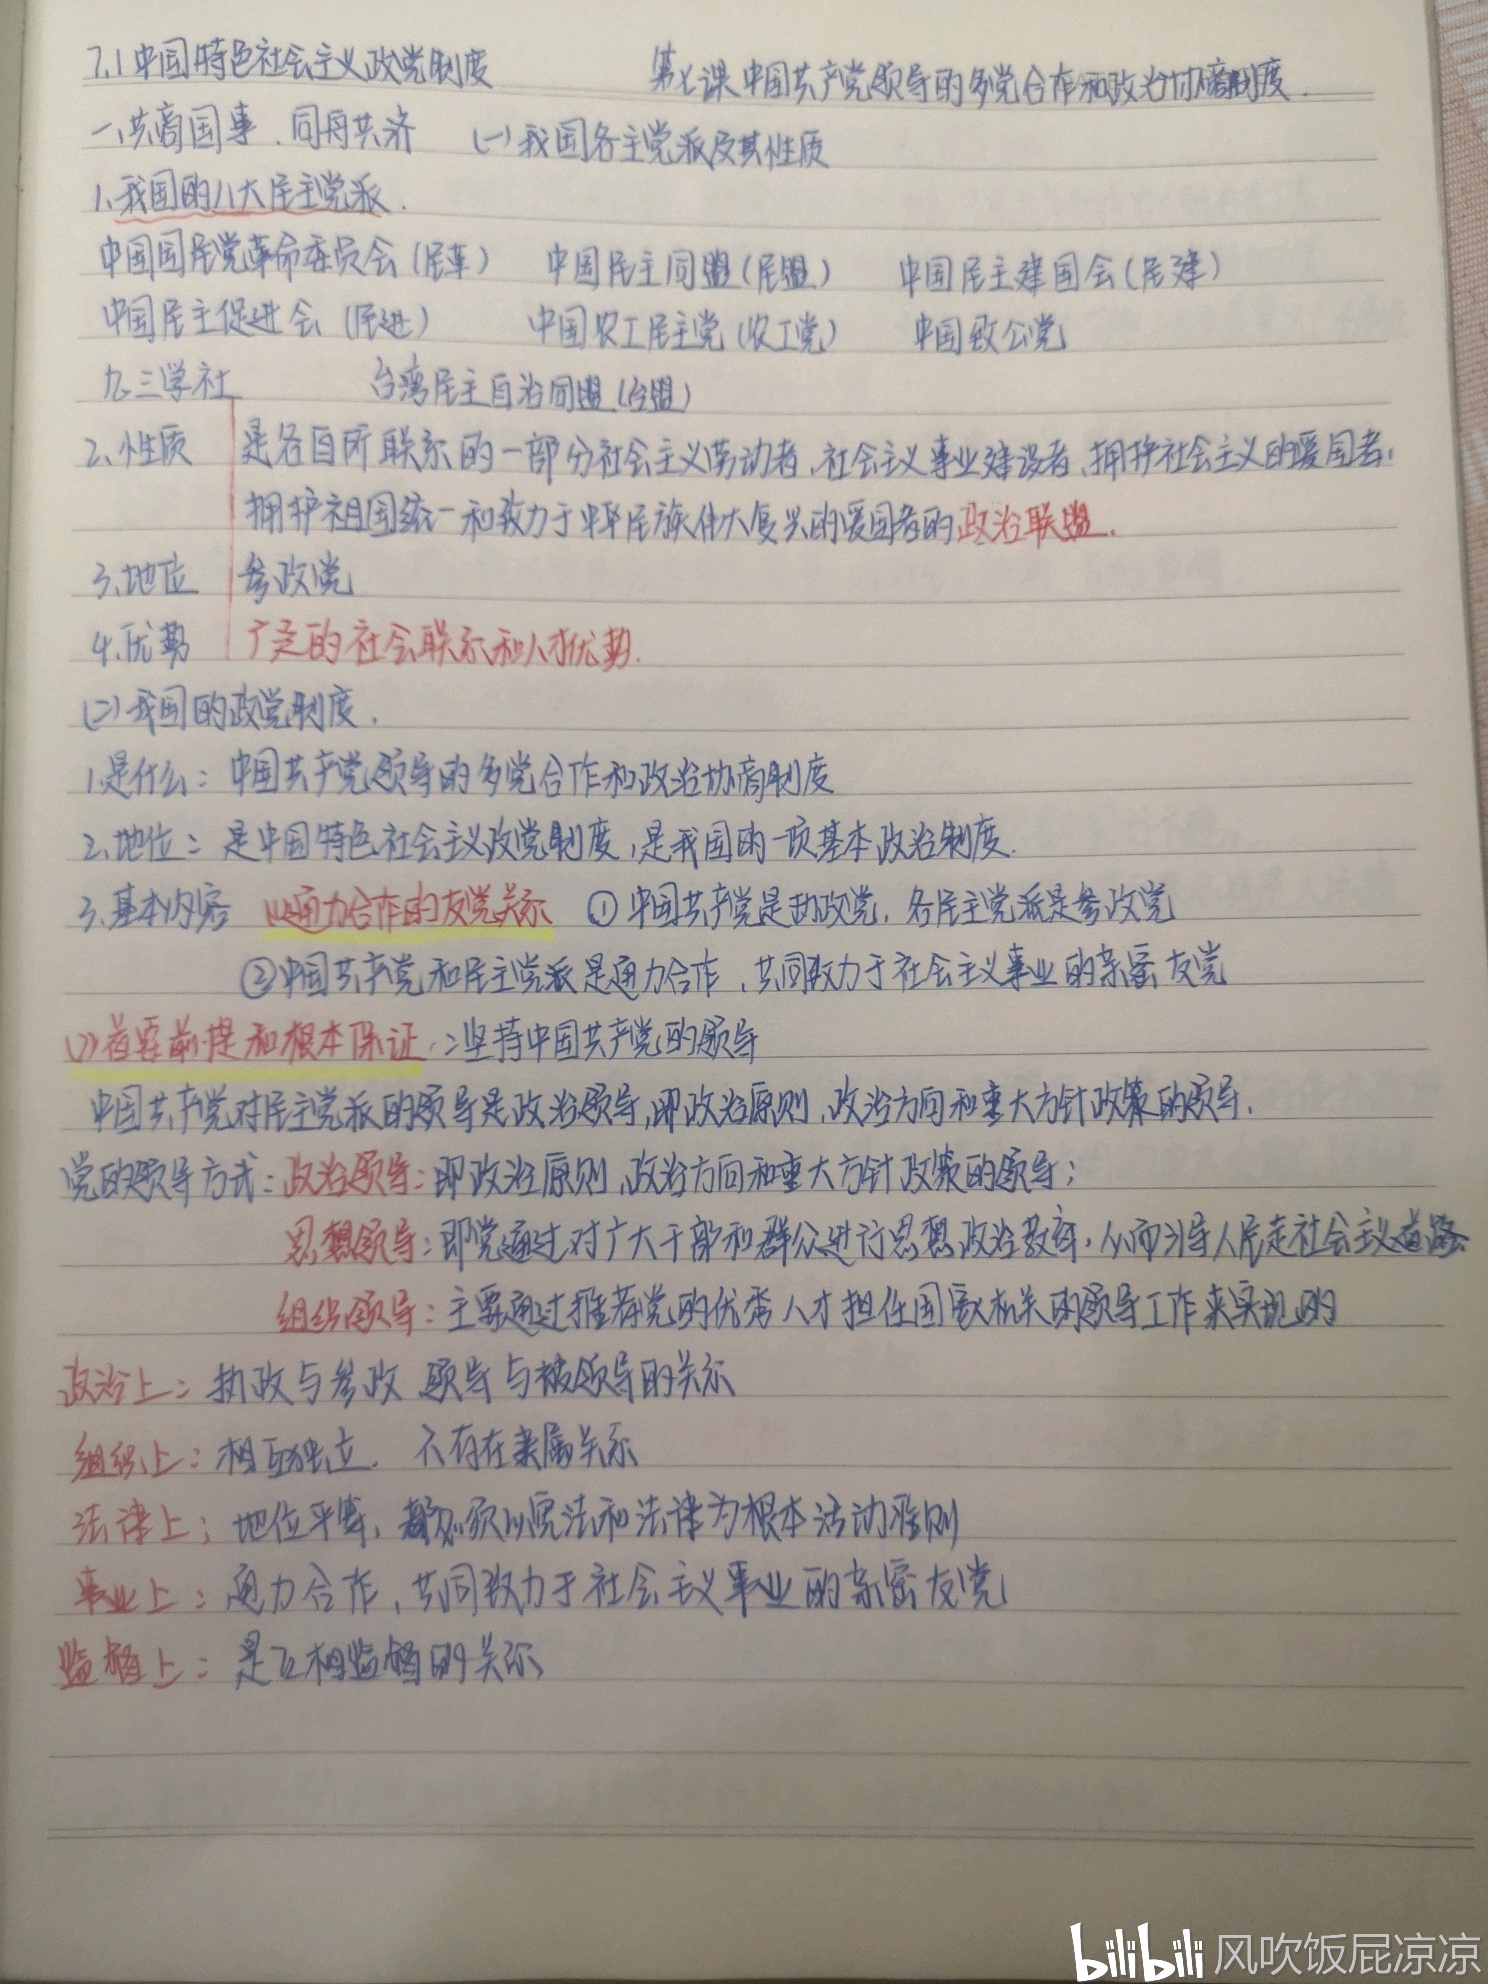 7.1中国特色社会主义政党制度 第七课 中国共产党领导的多党合作和政治协商制度.
一、共商国事、同舟共济 (一)我国各主党派及其性质
1、我国的八大民主党派.
中国国民党革命委员会(民革) 中国民主同盟(民盟) 中国民主建国会(民建)
中国民主促进会(民进) 中国农工民主党(农工党) 中国致公党
九三学社 台湾民主自治同盟(台盟)
2、性质 是各自所联系的一部分社会主义劳动者、社会主义事业建设者、拥护社会主义的爱国者、
拥护祖国统一和致力于中华民族伟大复兴的爱国者的政治联盟.
3、地位 参政党
4、优势 广泛的社会联系和人才优势.
(二)我国的政党制度.
1.是什么：中国共产党领导的多党合作和政治协商制度
2、地位：是中国特色社会主义政党制度,是我国的一项基本政治制度.
3、基本内容 (1)通力合作的友党关系 ①中国共产党是执政党,各民主党派是参政党
②中国共产党和民主党派是通力合作、共同致力于社会主义事业的亲密友党
(2)首要前提和根本保证：坚持中国共产党的领导
中国共产党对民主党派的领导是政治领导,即政治原则、政治方向和重大方针政策的领导.
党的领导方式：政治领导：即政治原则、政治方向和重大方针政策的领导；
思想领导：即党通过对广大干部和群众进行思想政治教育,从而引导人民走社会主义道路
组织领导：主要通过推荐党的优秀人才担任国家机关的领导工作来实现的
政治上：执政与参政 领导与被领导的关系
组织上：相互独立、不存在隶属关系
法律上：地位平等,都必须以宪法和法律为根本活动准则
事业上：通力合作、共同致力于社会主义事业的亲密友党
监督上：是互相监督的关系
bilibili 风吹饭屁凉凉